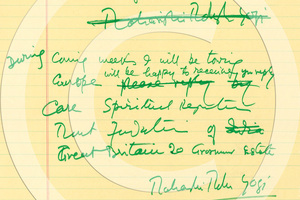 Maharishi Mahesh Yogi
During Coming week I will be
Europe will be happy to receive your reply
Please reply by
Care Spiritual
of
Great Britain 20 Grosvenor Estate
Maharishi Mahesh Yogi